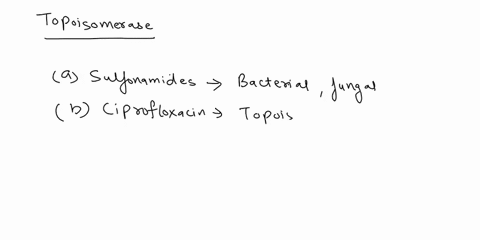 Topoisomerase
(a) Sulfonamides → Bacterial, fungal
(b) Ciprofloxacin → Topois